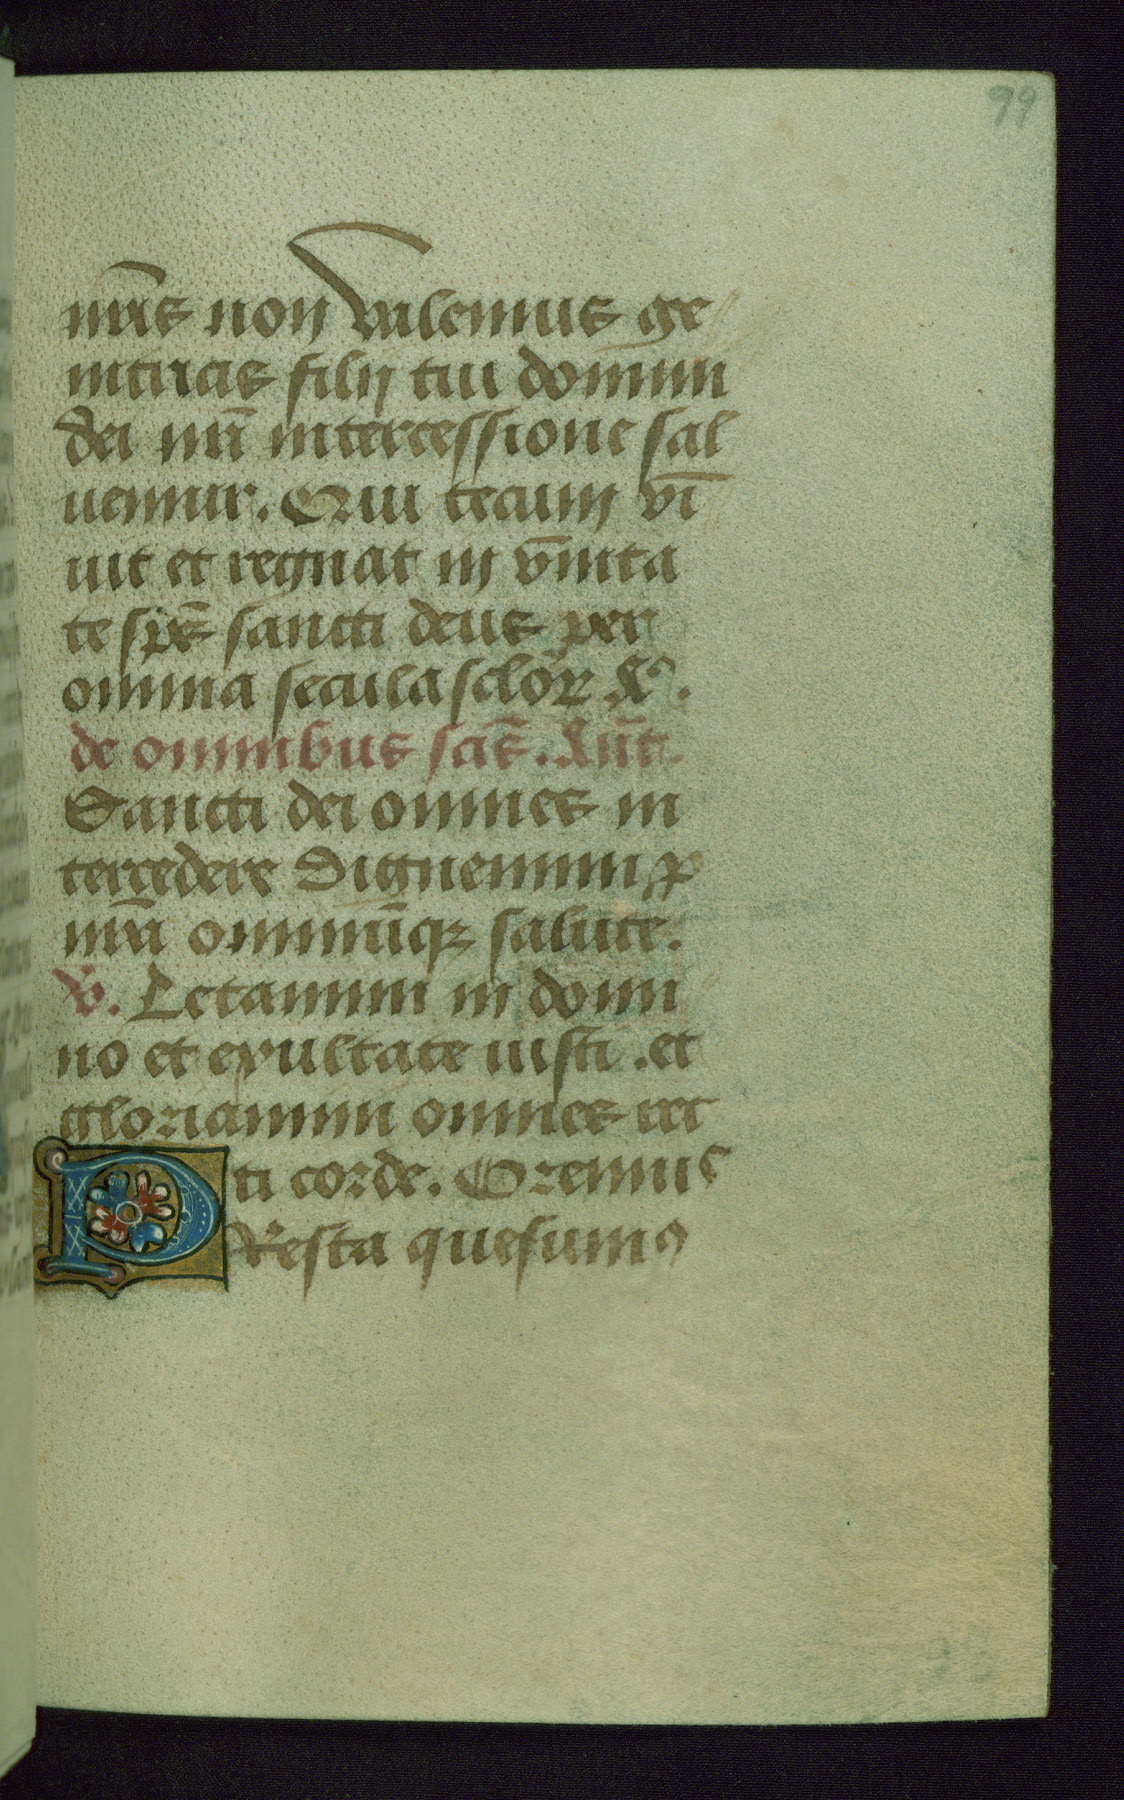 99
nr̄is non valemus ge
nitricis filij tui domini
dei nr̄i intercessione sal
uemur. Qui tecum vi
uit et regnat in vnita
te spūs sancti deus per
omnia secula sclor̄
de omnibus scīs. Ant̄.
Sancti dei omnes in
tercedere dignemini p
nrā omniūqꝫ salute.
℣. Letamini in domi
no et exultate iusti .et
gloriamini omnes rec
ti corde. Oremus
PResta quesumꝰ